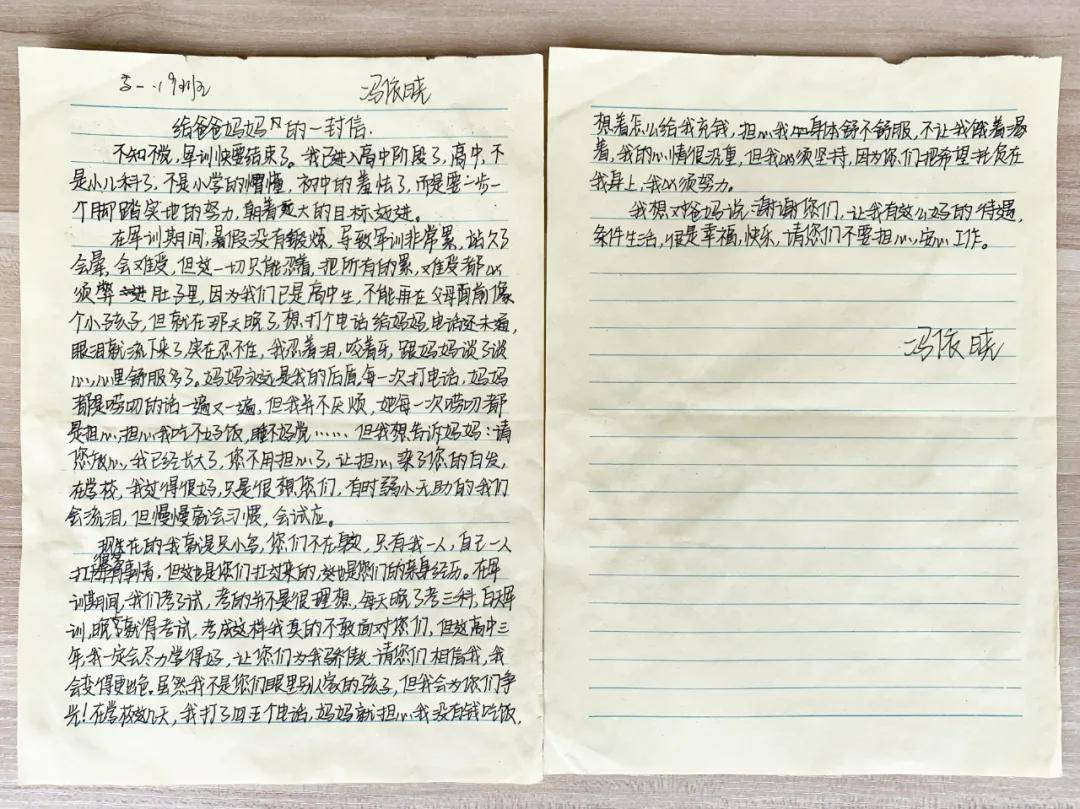 高一.19班
冯依晓
给爸爸妈妈的一封信.
不知不觉,军训快要结束了。我已进入高中阶段了,高中,不
是小儿科了,不是小学的懵懂,初中的羞怯了,而是要一步一
个脚踏实地的努力,朝着远大的目标迈进。
在军训期间,暑假没有锻炼,导致军训非常累,站久了
会晕,会难受,但这一切只能忍着,把所有的累,难受都必
须弊进肚子里,因为我们已是高中生,不能再在父母面前像
个小孩子,但就在那天晚了,想打个电话给妈妈,电话还未通,
眼泪就流下来了,实在忍不住,我忍着泪,咬着牙,跟妈妈谈了谈
心,心里舒服多了。妈妈永远是我的后盾,每一次打电话,妈妈
都是唠叨的话一遍又一遍,但我并不厌烦,她每一次唠叨都
是担心,担心我吃不好饭,睡不好觉……但我想告诉妈妈:请
您放心,我已经长大了,您不用担心了,让担心染了您的白发,
在学校,我过得很好,只是很想您们,有时弱小无助的我们
会流泪,但慢慢就会习惯,会试应。
现在的我就是只小鸟,您们不在身边,只有我一人,自己一人
扛得事情,但这也是您们扛过来的,这也是您们的亲身经历。在军
训期间,我们考了试,考的并不是很理想,每天晚了考三科,白天军
训,晚了就得考试,考成这样我真的不敢面对您们,但这高中三
年,我一定会尽力学得好,让您们为我骄傲,请您们相信我,我
会变得更出色。虽然我不是您们眼里别人家的孩子,但我会为您们争
光!在学校这几天,我打了四五个电话,妈妈就担心我没有钱吃饭,
想着怎么给我充钱,担心我身体舒不舒服,不让我饿着渴
着,我的心情很沉重,但我必须坚持,因为您们把希望托负在
我身上,我必须努力。
我想对爸妈说:谢谢您们,让我有这么好的待遇,
条件生活,很是幸福,快乐,请您们不要担心,安心工作。
冯依晓